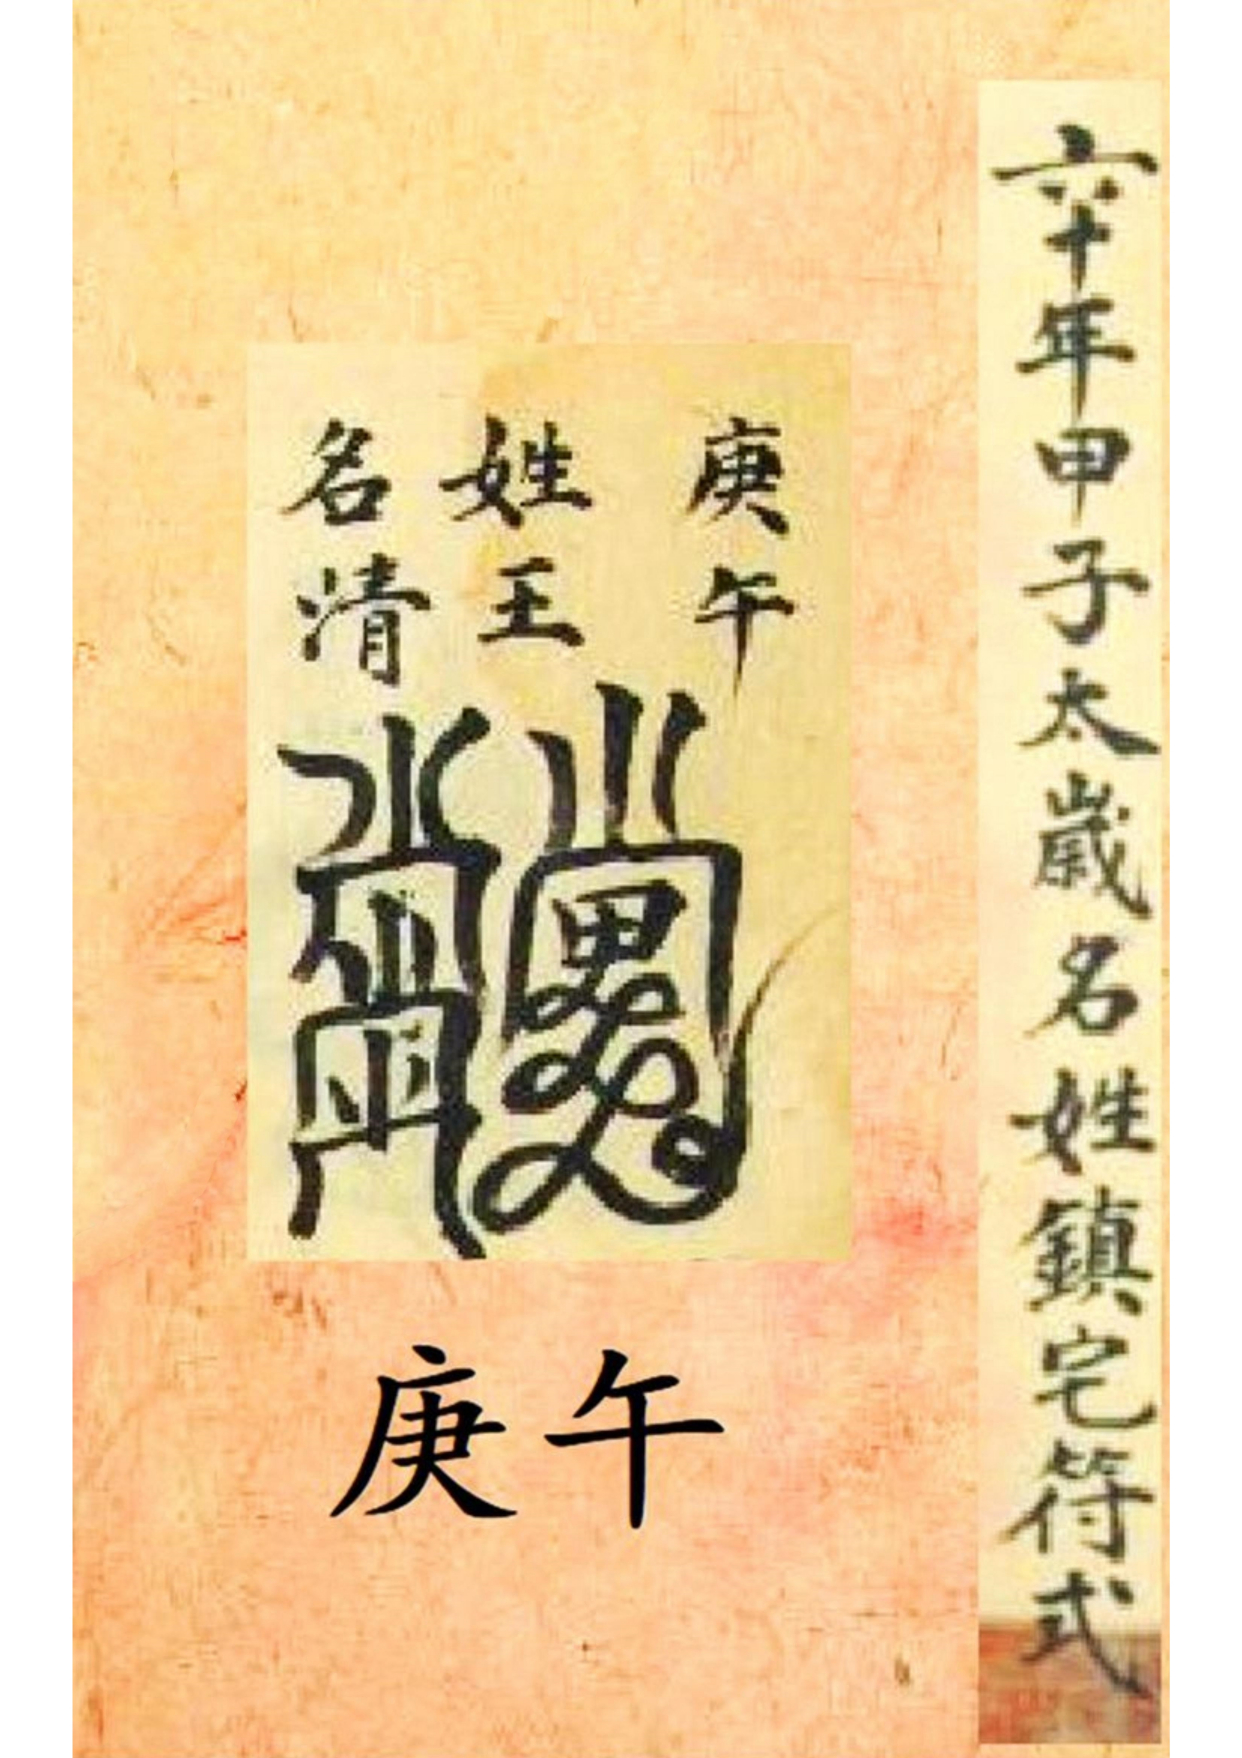 六十年甲子太歲名姓鎮宅符式
庚午
姓王
名清
庚午